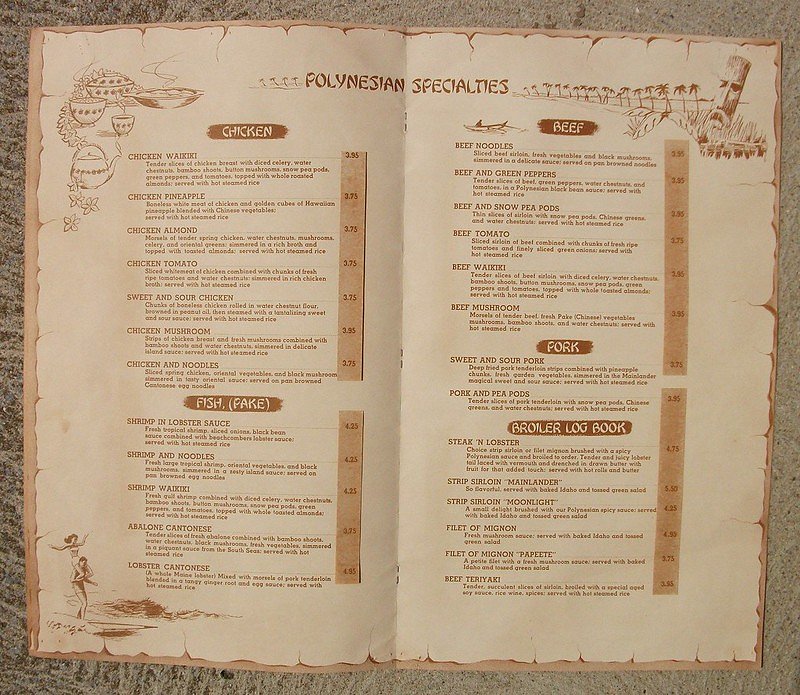 POLYNESIAN SPECIALTIES
CHICKEN
CHICKEN WAIKIKI 3.95
Tender slices of chicken breast with diced celery, water
chestnuts, bamboo shoots, button mushrooms, snow pea pods,
green peppers, and tomatoes, topped with whole roasted
almonds; served with hot steamed rice
CHICKEN PINEAPPLE 3.75
Boneless white meat of chicken and golden cubes of Hawaiian
pineapple blended with Chinese vegetables;
served with hot steamed rice
CHICKEN ALMOND 3.75
Morsels of tender spring chicken, water chestnuts, mushrooms,
celery, and oriental greens; simmered in a rich broth and
topped with toasted almonds; served with hot steamed rice
CHICKEN TOMATO 3.75
Sliced whitemeat of chicken combined with chunks of fresh
ripe tomatoes and water chestnuts; simmered in rich chicken
broth; served with hot steamed rice
SWEET AND SOUR CHICKEN 3.75
Chunks of boneless chicken rolled in water chestnut flour,
browned in peanut oil, then steamed with a tantalizing sweet
and sour sauce; served with hot steamed rice
CHICKEN MUSHROOM 3.95
Strips of chicken breast and fresh mushrooms combined with
bamboo shoots and water chestnuts, simmered in delicate
island sauce; served with hot steamed rice
CHICKEN AND NOODLES 3.75
Sliced spring chicken, oriental vegetables, and black mushroom
simmered in tasty oriental sauce; served on pan browned
Cantonese egg noodles
FISH, (PAKE)
SHRIMP IN LOBSTER SAUCE 4.25
Fresh tropical shrimp, sliced onions, black bean
sauce combined with beachcombers lobster sauce;
served with hot steamed rice
SHRIMP AND NOODLES 4.25
Fresh large tropical shrimp, oriental vegetables, and black
mushrooms, simmered in a zesty island sauce; served on
pan browned egg noodles
SHRIMP WAIKIKI 4.25
Fresh gulf shrimp combined with diced celery, water chestnuts,
bamboo shoots, button mushrooms, snow pea pods, green
peppers, and tomatoes, topped with whole toasted almonds;
served with hot steamed rice
ABALONE CANTONESE 3.75
Tender slices of fresh abalone combined with bamboo shoots,
water chestnuts, black mushrooms, fresh vegetables, simmered
in a piquant sauce from the South Seas; served with hot
steamed rice
LOBSTER CANTONESE 4.95
(A whole Maine lobster) Mixed with morsels of pork tenderloin
blended in a tangy ginger root and egg sauce; served with
hot steamed rice
BEEF
BEEF NOODLES 3.95
Sliced beef sirloin, fresh vegetables and black mushrooms,
simmered in a delicate sauce; served on pan browned noodles
BEEF AND GREEN PEPPERS 3.95
Tender slices of beef, green peppers, water chestnuts, and
tomatoes, in a Polynesian black bean sauce; served with
hot steamed rice
BEEF AND SNOW PEA PODS 3.95
Thin slices of sirloin with snow pea pods, Chinese greens,
and water chestnuts; served with hot steamed rice
BEEF TOMATO 3.75
Sliced sirloin of beef combined with chunks of fresh ripe
tomatoes and finely sliced green onions; served with
hot steamed rice
BEEF WAIKIKI 3.95
Tender slices of beef sirloin with diced celery, water chestnuts,
bamboo shoots, button mushrooms, snow pea pods, green
peppers and tomatoes, topped with whole toasted almonds;
served with hot steamed rice
BEEF MUSHROOM 3.95
Morsels of tender beef, fresh Pake (Chinese) vegetables
mushrooms, bamboo shoots, and water chestnuts; served with
hot steamed rice
PORK
SWEET AND SOUR PORK 3.75
Deep fried pork tenderloin strips combined with pineapple
chunks, fresh garden vegetables, simmered in the Mainlander
magical sweet and sour sauce; served with hot steamed rice
PORK AND PEA PODS 3.95
Tender slices of pork tenderloin with snow pea pods, Chinese
greens, and water chestnuts; served with hot steamed rice
BROILER LOG BOOK
STEAK 'N LOBSTER 4.75
Choice strip sirloin or filet mignon brushed with a spicy
Polynesian sauce and broiled to order. Tender and juicy lobster
tail laced with vermouth and drenched in drawn butter with
fruit for that added touch; served with hot rolls and butter
STRIP SIRLOIN "MAINLANDER" 5.50
So flavorful, served with baked Idaho and tossed green salad
STRIP SIRLOIN "MOONLIGHT" 4.25
A small delight brushed with our Polynesian spicy sauce; served
with baked Idaho and tossed green salad
FILET OF MIGNON 4.95
Fresh mushroom sauce; served with baked Idaho and tossed
green salad
FILET OF MIGNON "PAPEETE" 3.75
A petite filet with a fresh mushroom sauce; served with baked
Idaho and tossed green salad
BEEF TERIYAKI 3.95
Tender, succulent slices of sirloin, broiled with a special aged
soy sauce, rice wine, spices; served with hot steamed rice